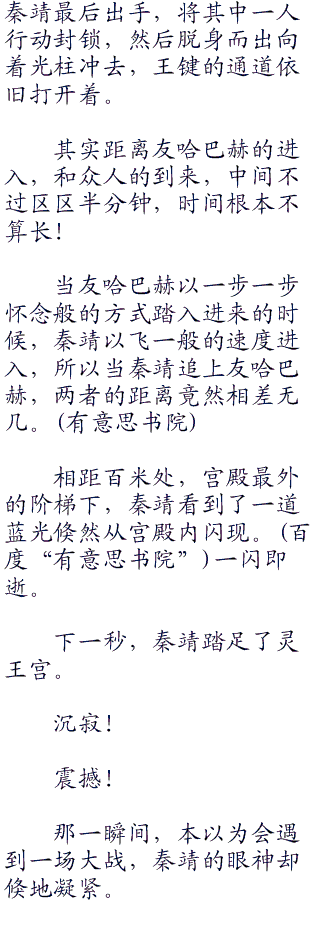 秦靖最后出手，将其中一人
行动封锁，然后脱身而出向
着光柱冲去，王键的通道依
旧打开着。
其实距离友哈巴赫的进
入，和众人的到来，中间不
过区区半分钟，时间根本不
算长！
当友哈巴赫以一步一步
怀念般的方式踏入进来的时
候，秦靖以飞一般的速度进
入，所以当秦靖追上友哈巴
赫，两者的距离竟然相差无
几。(有意思书院)
相距百米处，宫殿最外
的阶梯下，秦靖看到了一道
蓝光倏然从宫殿内闪现。(百
度“有意思书院”)一闪即
逝。
下一秒，秦靖踏足了灵
王宫。
沉寂！
震撼！
那一瞬间，本以为会遇
到一场大战，秦靖的眼神却
倏地凝紧。